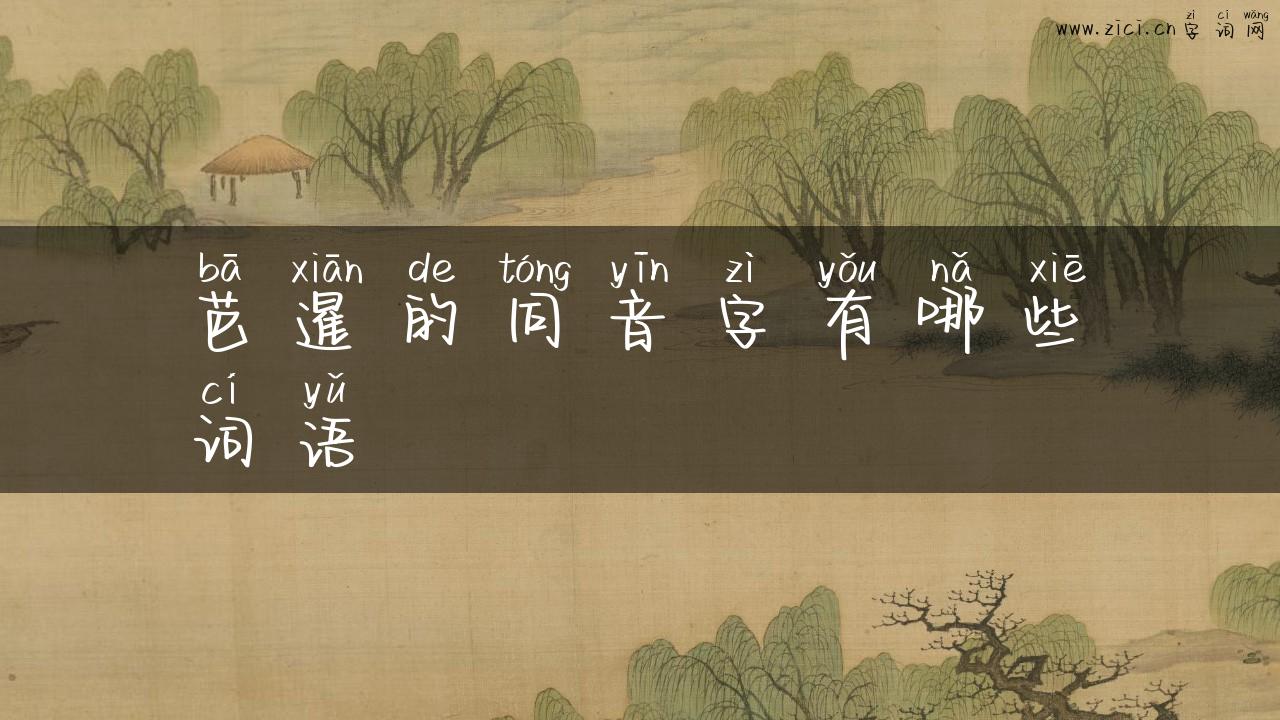 zì cí wǎng
www.zici.cn 字 词 网
bā xiān de tóng yīn zì yǒu nǎ xiē
芭 暹 的 同 音 字 有 哪 些
cí yǔ
词 语